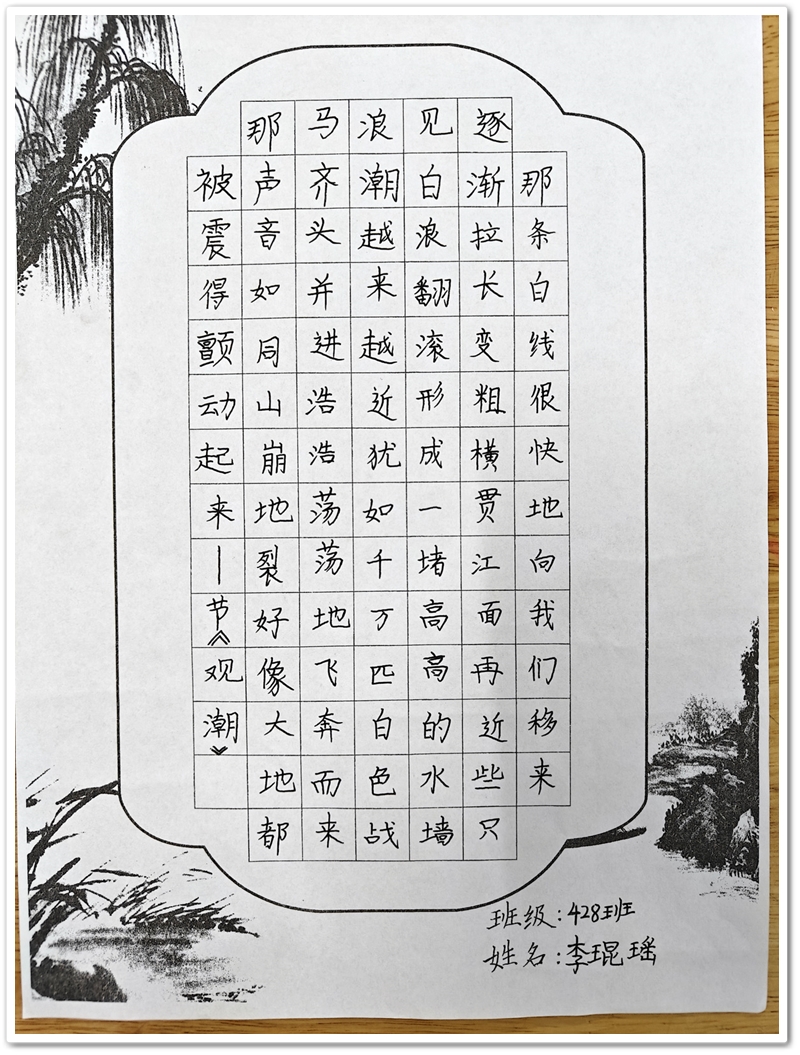 那条白线很快地向我们移来
逐渐拉长变粗横贯江面再近些只
见白浪翻滚形成一堵高高的水墙
浪潮越来越近犹如千万匹白色战
马齐头并进浩浩荡荡地飞奔而来
那声音如同山崩地裂好像大地都
被震得颤动起来—节《观潮》
班级:428班
姓名:李琨瑶